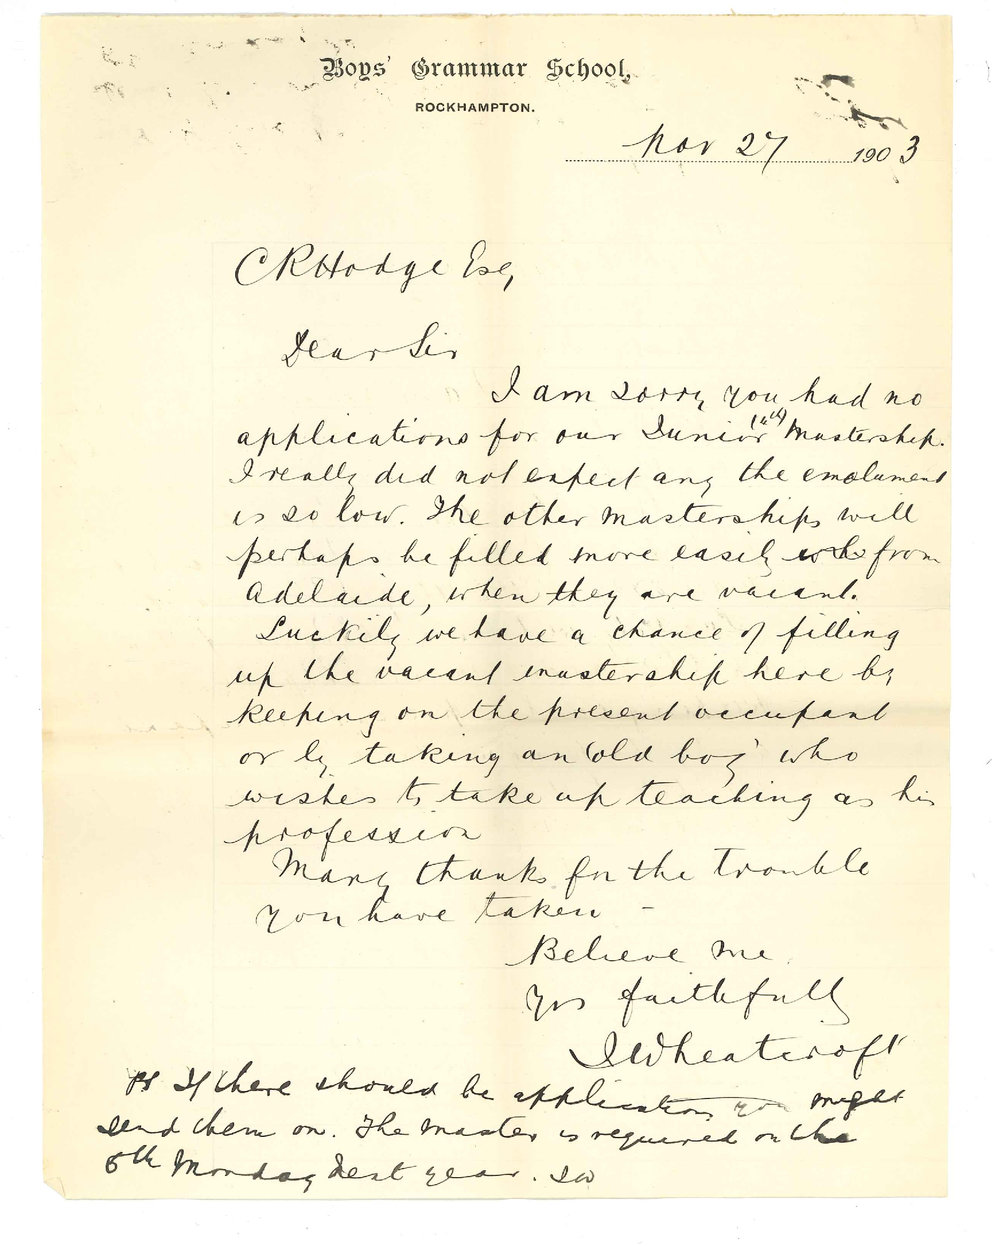 Boys' Grammar School,
ROCKHAMPTON.
Nov 27 1903
C R Hodge Esq,
Dear Sir
I am sorry you had no
applications for our Junior (4th) Mastership.
I really did not expect any the emolument
is so low. The other masterships will
perhaps be filled more easily from
Adelaide, when they are vacant.
Luckily we have a chance of filling
up the vacant mastership here by
keeping on the present occupant
or by taking an 'old boy' who
wishes to take up teaching as his
profession
Many thanks for the trouble
you have taken –
Believe me
Yrs faithfully
J Wheatcroft
PS If there should be applications you might
send them on. The master is required on the
Monday next year. JW